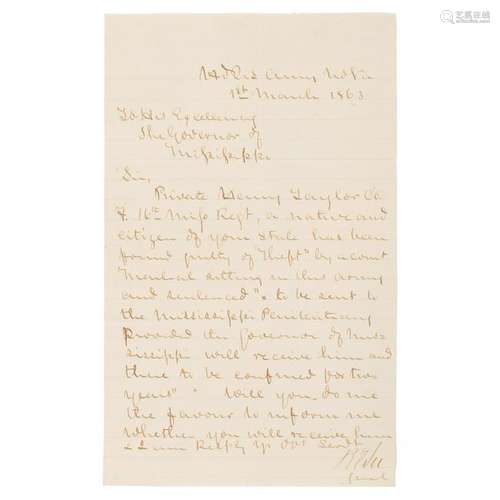 Hd Qrs Army No Va
1st March 1863
To His Excellency
The Governor of
Mississippi
Sir,
Private Henry Taylor Co
16th Miss Regt, a native and
citizen of your State has been
found guilty of "Theft" by a court
Martial sitting in this army
and sentenced "to be sent to
the Mississippi Penitentiary
provided the Governor of Mis-
sissippi will receive him and
there to be confined for two
years". Will you do me
the favour to inform me
whether you will receive him
I am Respy Yr Obt Servt
R E Lee
Genl
艺典在线
yidianchina.com